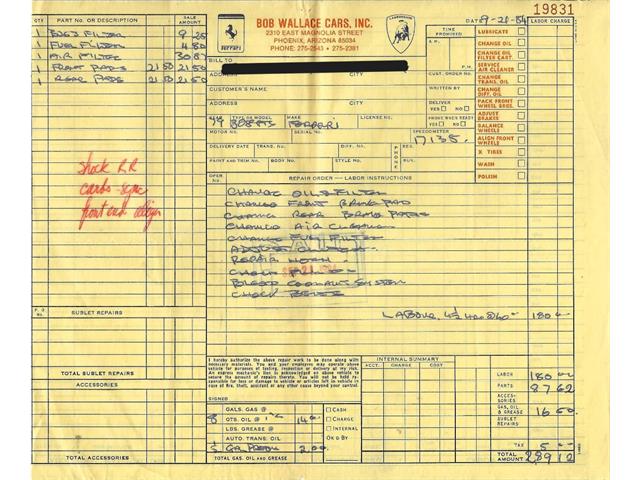 19831
QTY. PART NO. OR DESCRIPTION SALE AMOUNT
BOB WALLACE CARS, INC.
2310 EAST MAGNOLIA STREET
PHOENIX, ARIZONA 85034
PHONE: 275-2543 • 275-2381
Ferrari
LAMBORGHINI
DATE 9-21-84
LABOR CHARGE
TIME PROMISED
A.M.
P.M.
BILL TO
CUST. ORDER NO.
CUSTOMER'S NAME
WRITTEN BY
ADDRESS CITY
DELIVER YES NO
ADDRESS CITY
PHONE WHEN READY YES NO
YEAR TYPE OR MODEL MAKE
79 308GTS FERRARI
SPEEDOMETER
17135.
MOTOR NO. SERIAL NO.
DELIVERY DATE TRANS. NO. DIFF. NO. KEY NO.
PAINT AND TRIM NO. BODY NO. STYLE NO.
PHONE RES. BUS.
LUBRICATE
CHANGE OIL
CHANGE OIL FILTER CART.
SERVICE AIR CLEANER
CHANGE TRANS. OIL
CHANGE DIFF. OIL
PACK FRONT WHEEL BRGS.
ADJUST BRAKES
BALANCE WHEELS
ALIGN FRONT WHEELS
X TIRES
WASH
POLISH
1 ENG FILTER 9 25
1 FUEL FILTER 4 80
1 AIR FILTER 30 87
1 FRONT PADS 21 50 21 50
1 REAR PADS 21 50 21 50
shock RR
carbs - sync
front end align
OPER. NO. REPAIR ORDER — LABOR INSTRUCTIONS
CHANGE OIL & FILTER
CHANGED FRONT BRAKE PAD
CHANGE REAR BRAKE PADS
CHANGED AIR CLEANER
CHANGE FUEL FILTER
REPAIR HORN
BLEED COOLANT SYSTEM
CHECK BELTS
LABOUR 4½ HRS @ 40— 180
SUBLET REPAIRS
TOTAL SUBLET REPAIRS
ACCESSORIES
TOTAL ACCESSORIES
I hereby authorize the above repair work to be done along with necessary materials. You and your employees may operate above vehicle for purposes of testing, inspection or delivery at my risk. An express mechanic's lien is acknowledged on above vehicle to secure the amount of repairs thereto. You will not be held responsible for loss or damage to vehicle or articles left in vehicle in case of fire, theft, accident or any other cause beyond your control.
SIGNED
INTERNAL SUMMARY
ACCT. CHARGE COST ACCT. CHARGE COST
GALS. GAS @
8 QTS. OIL @
LBS. GREASE @
AUTO. TRANS. OIL
2.00
TOTAL GAS, OIL AND GREASE
CASH
CHARGE
INTERNAL
OK'D BY
LABOR 180
PARTS 87 62
ACCESSORIES
GAS, OIL & GREASE 16 50
OUTSIDE REPAIRS
TAX 5
TOTAL AMOUNT 289 12